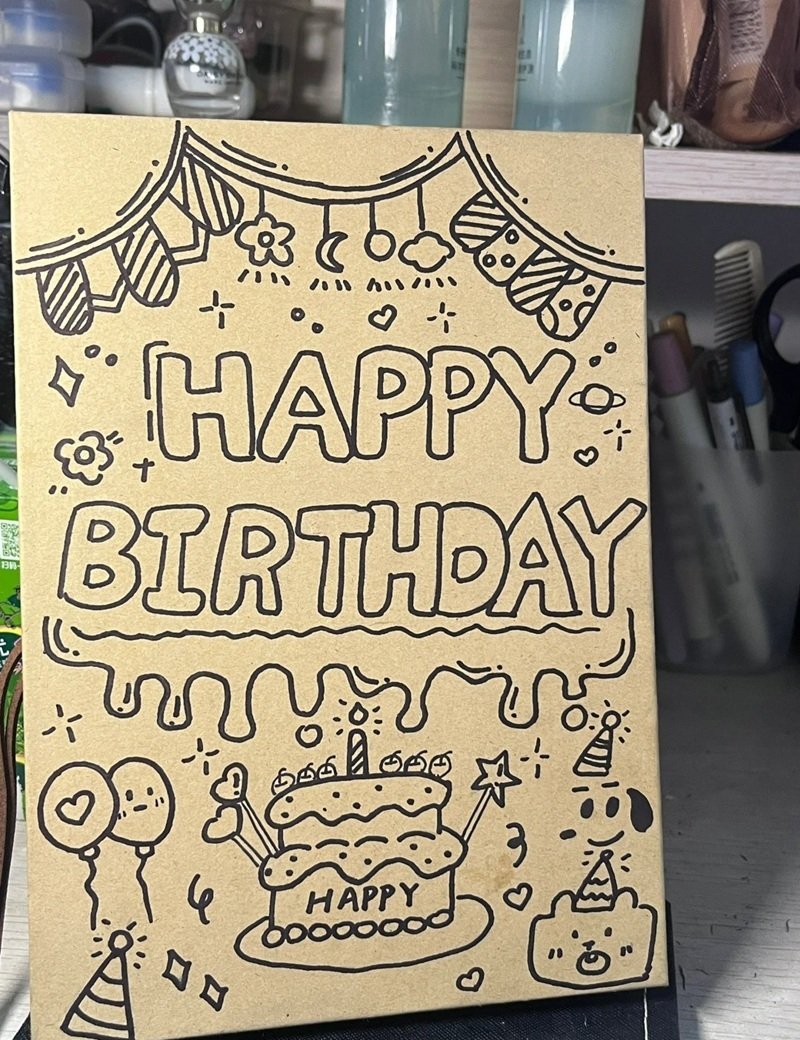 HAPPY
BIRTHDAY
HAPPY